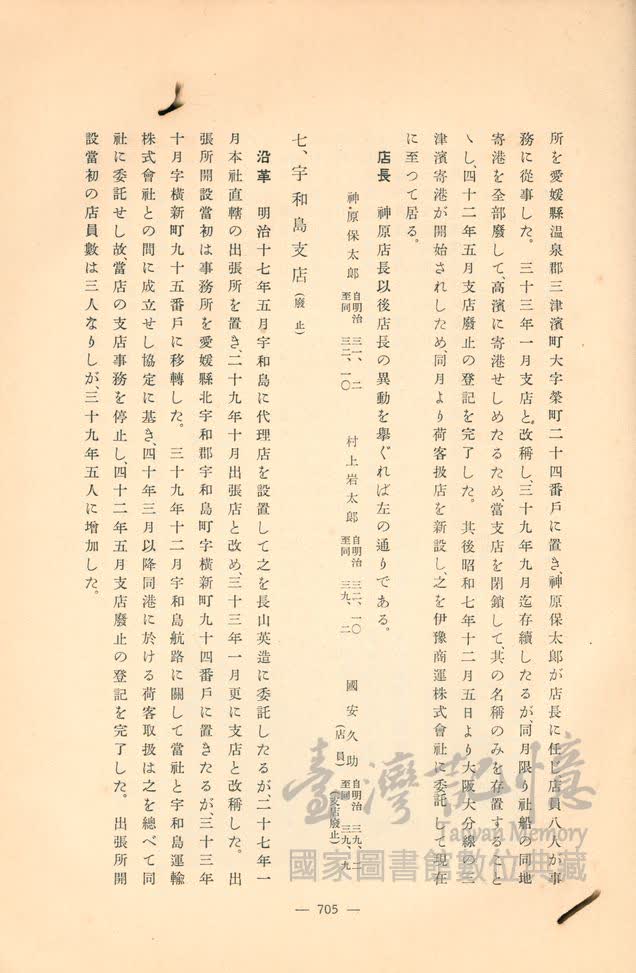 所を愛媛縣温泉郡三津濱町大字榮町二十四番戶に置き、神原保太郎が店長に任じ店員八人が事
務に從事した。　三十三年一月支店と改稱し、三十九年九月迄存續したるが、同月限り社船の同地
寄港を全部廢して、高濱に寄港せしめたるため、當支店を閉鎖して、其の名稱のみを存置すること
ゝし、四十二年五月支店廢止の登記を完了した。　其後昭和七年十二月五日より大阪大分線の三
津濱寄港が開始されしため、同月より荷客扱店を新設し、之を伊豫商運株式會社に委託して現在
に至つて居る。
店長　神原店長以後店長の異動を擧ぐれば左の通りである。
神原保太郎　自明治　三一、二　至同　三二、一〇　村上岩太郎　自明治　三二、一〇　至同　三九、二　國安久助（店員）　自明治　三九、二　至同　三九、九（支店廢止）
七、宇和島支店（廢止）
沿革　明治十七年五月宇和島に代理店を設置して之を長山英造に委託したるが、二十七年一
月本社直轄の出張所を置き、二十九年十月出張店と改め、三十三年一月更に支店と改稱した。　出
張所開設當初は事務所を愛媛縣北宇和郡宇和島町字橫新町九十四番戶に置きたるが、三十三年
十月字橫新町九十五番戶に移轉した。　三十九年十二月宇和島航路に關して當社と宇和島運輸
株式會社との間に成立せし協定に基き、四十年三月以降同港に於ける荷客取扱は之を總べて同
社に委託せし故、當店の支店事務を停止し、四十二年五月支店廢止の登記を完了した。　出張所開
設當初の店員數は三人なりしが、三十九年五人に增加した。
— 705 —
臺灣記憶
Taiwan Memory
國家圖書館數位典藏